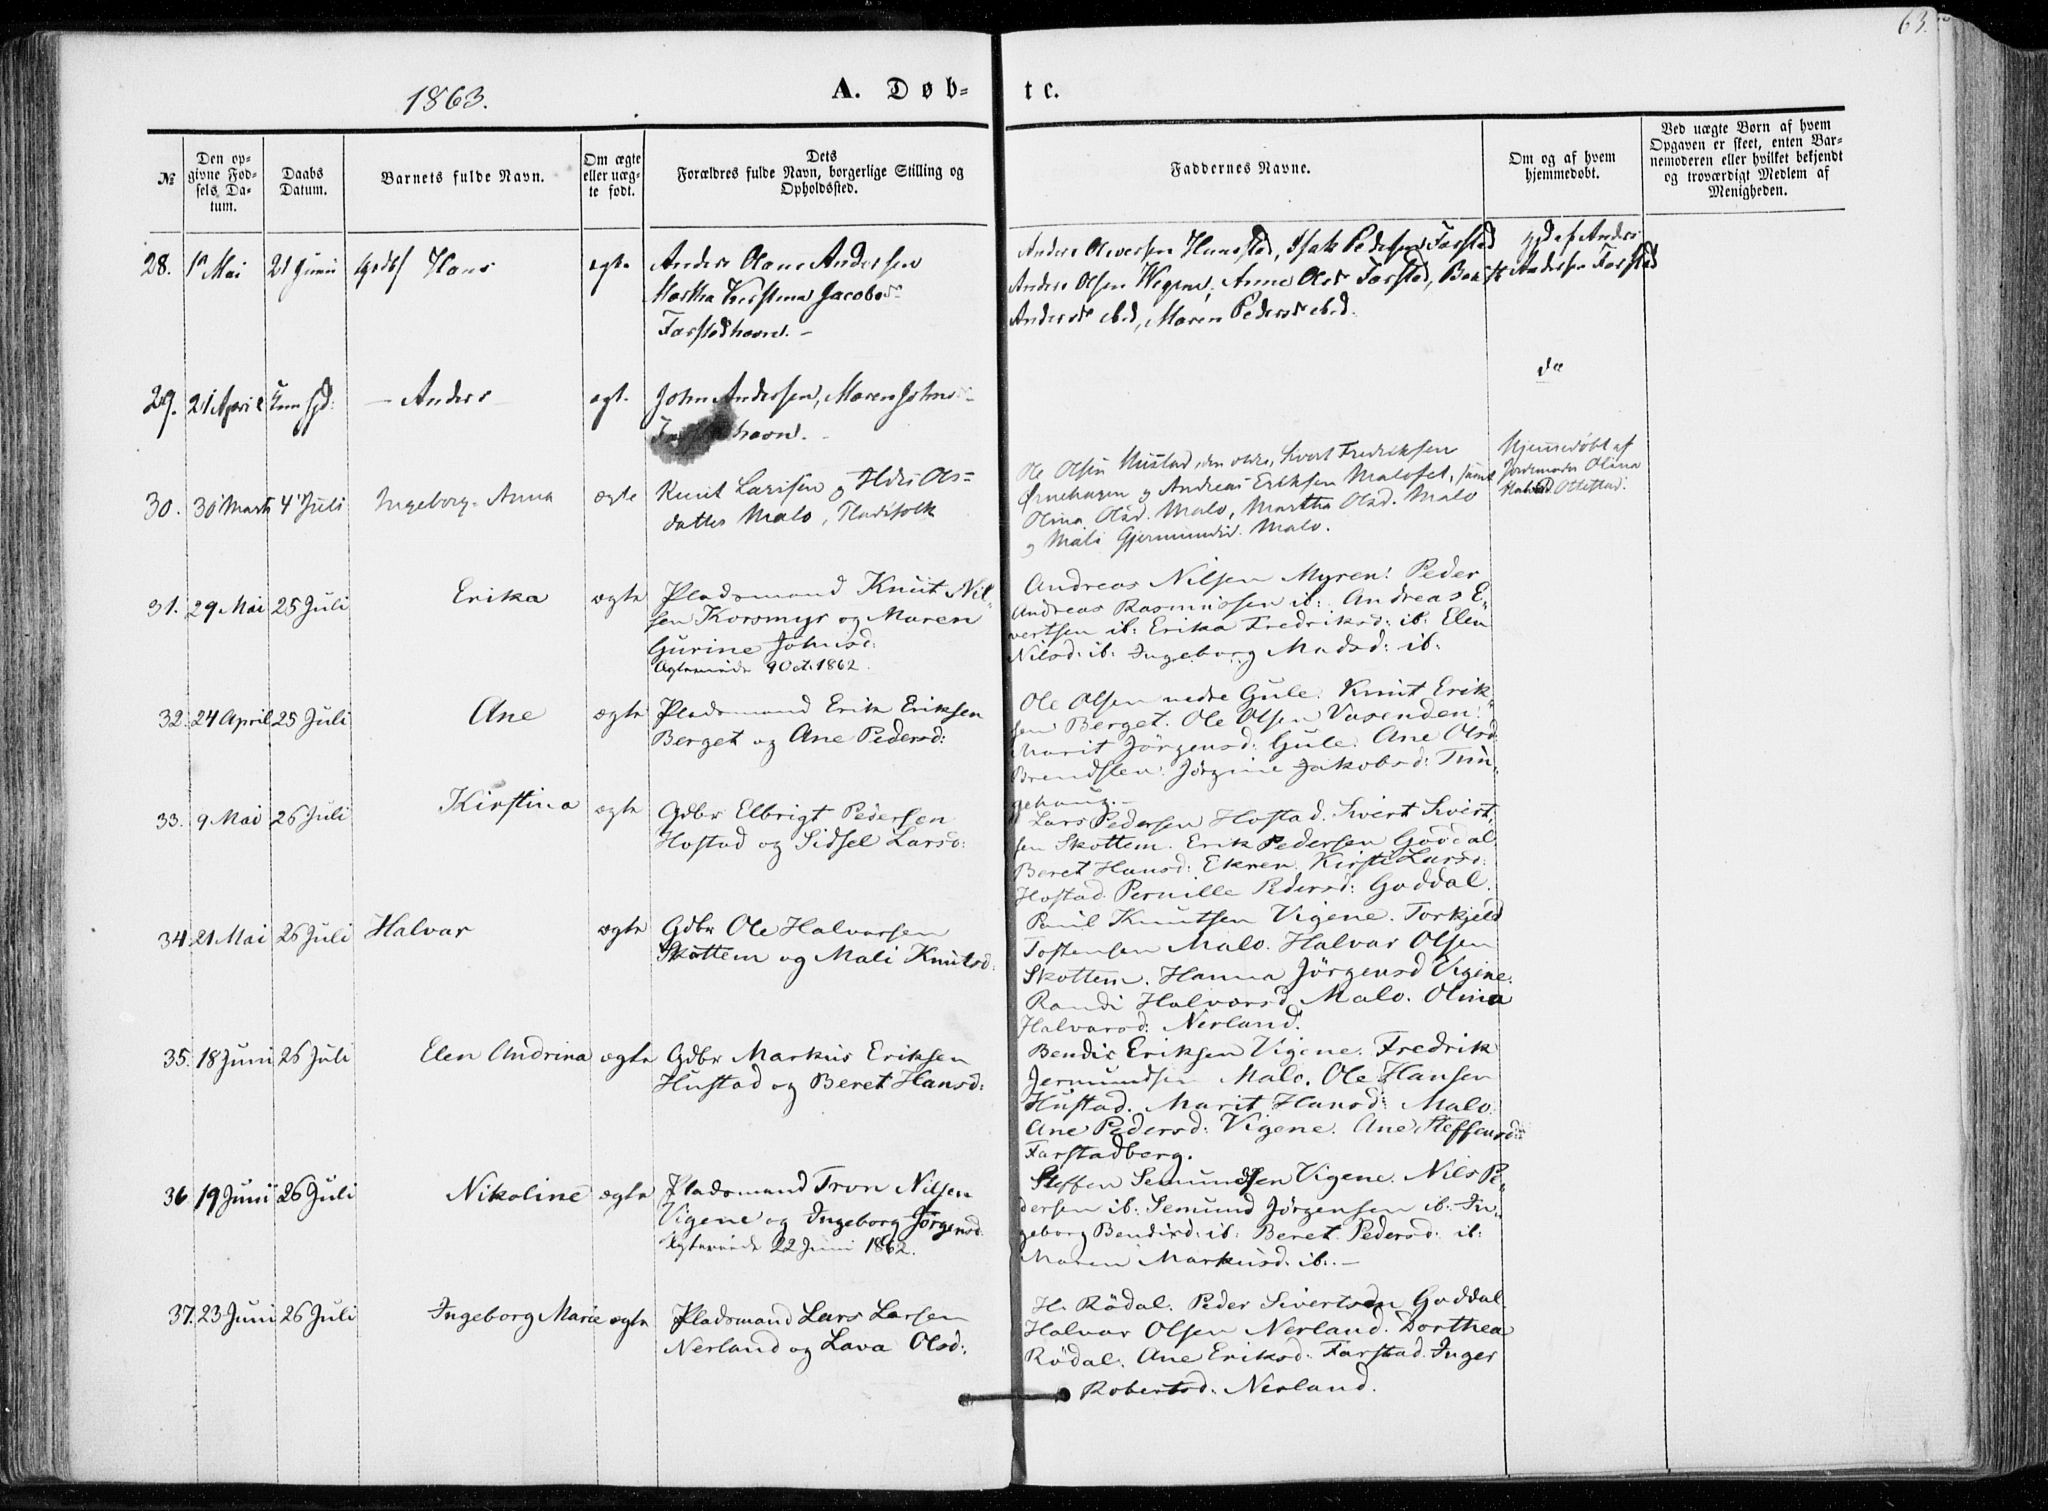 63.
1863.
A. Døb-
te.
№
Den op-
givne Fød-
sels Da-
tum.
Daabs
Datum.
Barnets fulde Navn.
Om ægte
eller uæg-
te født.
Dets
Forældres fulde Navn, borgerlige Stilling og
Opholdssted.
Faddernes Navne.
Om og af hvem
hjemmedøbt.
Ved uægte Børn af hvem
Opgaven er skeet, enten Bar-
nemoderen eller hvilket bekjendt
og troværdigt Medlem af
Menigheden.
28. 1 Mai 21 Junii Hans ægte
Anders Olaus Andersen
Martha Kirstina Jacobsd
Farstadhavn. -
Anders Oliversen Hunstad, Isak Pedersen Farstad
Anders Olsen Wegene, Anne Olsd Farstad,
Andersd ibid, Maren Pedersd ibid.
hjd af Anders
Andersen Farstad
29. 21 April - Anders ægt.
John Andersen, Maren Johns
havn. -
do
30. 30 Marts 4 Juli Ingeborg Anna ægte
Knut Larssen og Ols-
datter Malo, Pladsfolk
Ole Olsen Hustad den eldre, Sivert Fredriksen
Ørnehaugen og Andreas Eriksen Malofet, samt
Olina Olsd. Malo, Martha Olsd. Malo
og Mali Gjermundsd. Malo.
Hjemmedøbt af
Jordemoder Olina
Halvorsd. Ottestad.
31. 29 Mai 25 Juli Erika ægte
Pladsmand Knut Nil-
sen Korsmyr og Maren
Gurine Johnsd:
Ægteviede 9 Oct. 1862.
Andreas Nilsen Myren: Peder
Andreas Rasmussen ib: Andreas E-
vertsen ib: Erika Fredriksd: ib: Elen
Nilsd: ib: Ingeborg Madsd: ib:
32. 24 April 25 Juli Ane ægte
Pladsmand Erik Eriksen
Berget og Ane Pedersd:
Ole Olsen nedre Gule. Knut Erik-
sen Berget. Ole Olsen Vasenden:
Marit Jörgensd: Gule. Ane Olsd
Brendslen: Jörgine Jakobsd: Tun-
gehaug. -
33. 9 Mai 26 Juli Kirstina ægte
Gdbr Elbrigt Pedersen
Hostad og Sidsel Larsd:
Lars Pedersen Hostad. Sivert Sivert-
sen Skottem. Erik Pedersen Goddal
Beret Hansd: Ekren. Kirsti Larsd:
Hostad. Pernille Pedersd: Goddal.
34. 21 Mai 26 Juli Halvar ægte
Gdbr Ole Halvorsen
Skottem og Mali Knutsd:
Paul Knutsen Vigene. Torkjeld
Tostensen Malo. Halvar Olsen
Skottem. Hanna Jörgensd Vigene.
Randi Halvorsd Malo. Olina
Halvarsd: Nerland.
35. 18 Juni 26 Juli Elen Andrina ægte
Gdbr Markus Eriksen
Hustad og Beret Hansd:
Bendis Eriksen Vigene. Fredrik
Jermundsen Malo. Ole Hansen
Hustad. Marit Hansd: Malo.
Ane Pedersd: Vigene. Ane Steffensd:
Farstadberg.
36. 19 Junii 26 Juli Nikoline ægte
Pladsmand Tron Nilsen
Vigene og Ingeborg Jörgensd:
Ægteviede 22 Juni 1862.
Steffen Semundsen Vigene. Nils Pe-
dersen ib: Semund Jörgensen ib: In-
geborg Bendisd: ib: Beret Pedersd: ib:
Maren Markusd: ib: -
37. 23 Juni 26 Juli Ingeborg Marie ægte
Pladsmand Lars Larsen
Nerland og Lava Olsd:
H. Rödal. Peder Sivertsen Goddal.
Halvar Olsen Nerland. Dorthea
Rödal. Ane Eriksd: Farstad. Inger
Robertsd: Nerland.